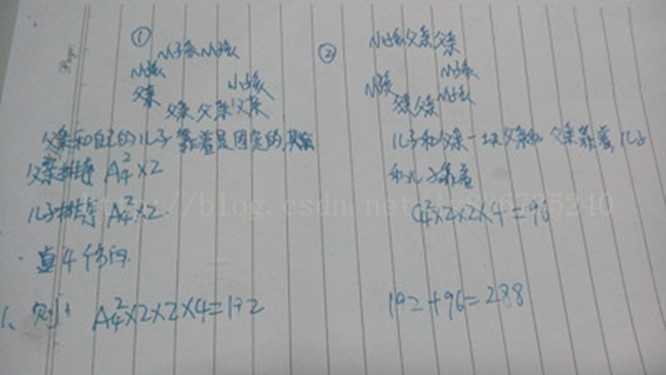 ①
小孩 小孩
小孩
小孩
父亲
父亲 父亲 父亲
父亲和自己的儿子靠着是固定的,
父亲排序 A₄²×2
儿子排序 A₄²×2
4个方向
则: A₄²×2×2×4=192
②
小孩 父亲 父亲
小孩
小孩
小孩
父亲 父亲
儿子和父亲一块 父亲和父亲靠着,儿子
和儿子靠着
C₄²×2×2×4=96
192+96=288
http://blog.csdn.net